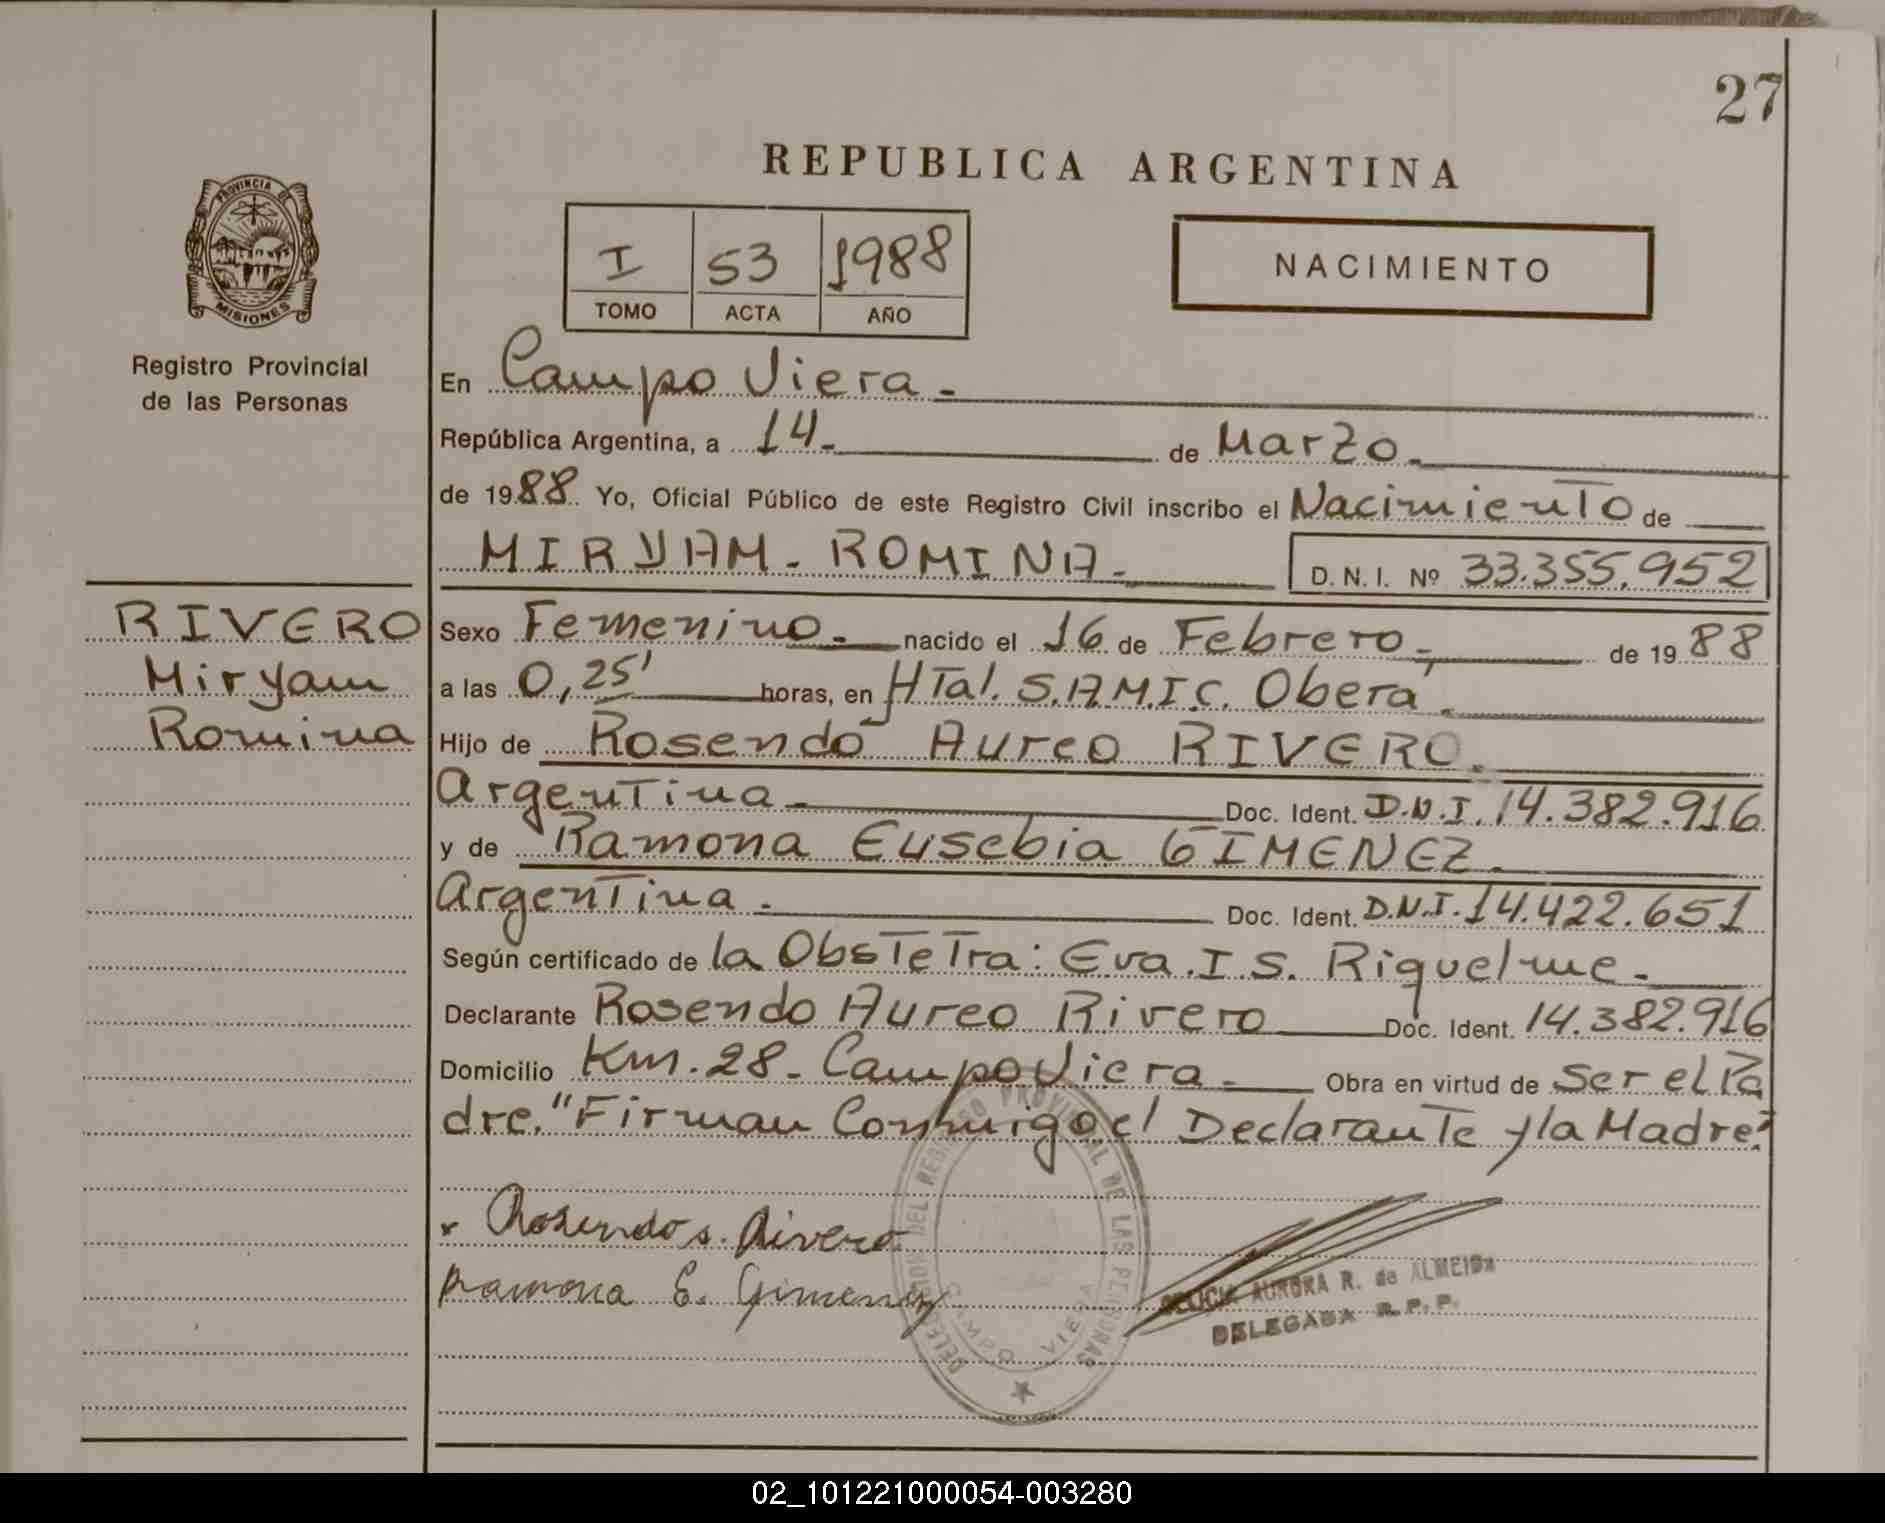 27
REPUBLICA ARGENTINA
PROVINCIA DE
MISIONES
Registro Provincial
de las Personas
I 53 1988
TOMO ACTA AÑO
NACIMIENTO
En Campo Viera.
República Argentina, a 14. de Marzo.
de 1988 Yo, Oficial Público de este Registro Civil inscribo el Nacimiento de
MIRYAM. ROMINA. D. N. I. Nº 33.355.952
RIVERO
Miryam
Romina
Sexo Femenino. nacido el 16 de Febrero. de 1988
a las 0,25' horas, en HTal. S.A.M.I.C. Oberá.
Hijo de Rosendo Aureo RIVERO.
Argentina. Doc. Ident. D.N.I. 14.382.916
y de Ramona Eusebia GIMENEZ.
Argentina. Doc. Ident. D.N.I. 14.422.651
Según certificado de la Obstetra: Eva. I. S. Riquelme.
Declarante Rosendo Aureo Rivero Doc. Ident. 14.382.916
Domicilio Km. 28. Campo Viera. Obra en virtud de Ser el Pa
dre. "Firman Conmigo el Declarante y la Madre."
Rosendo A. Rivero
Ramona E. Gimenez
DELEGACION DEL REGISTRO PROVINCIAL DE LAS PERSONAS
CAMPO VIERA
DELICIA AURORA R. de ALMEIDA
DELEGADA R. P. P.
02_101221000054-003280